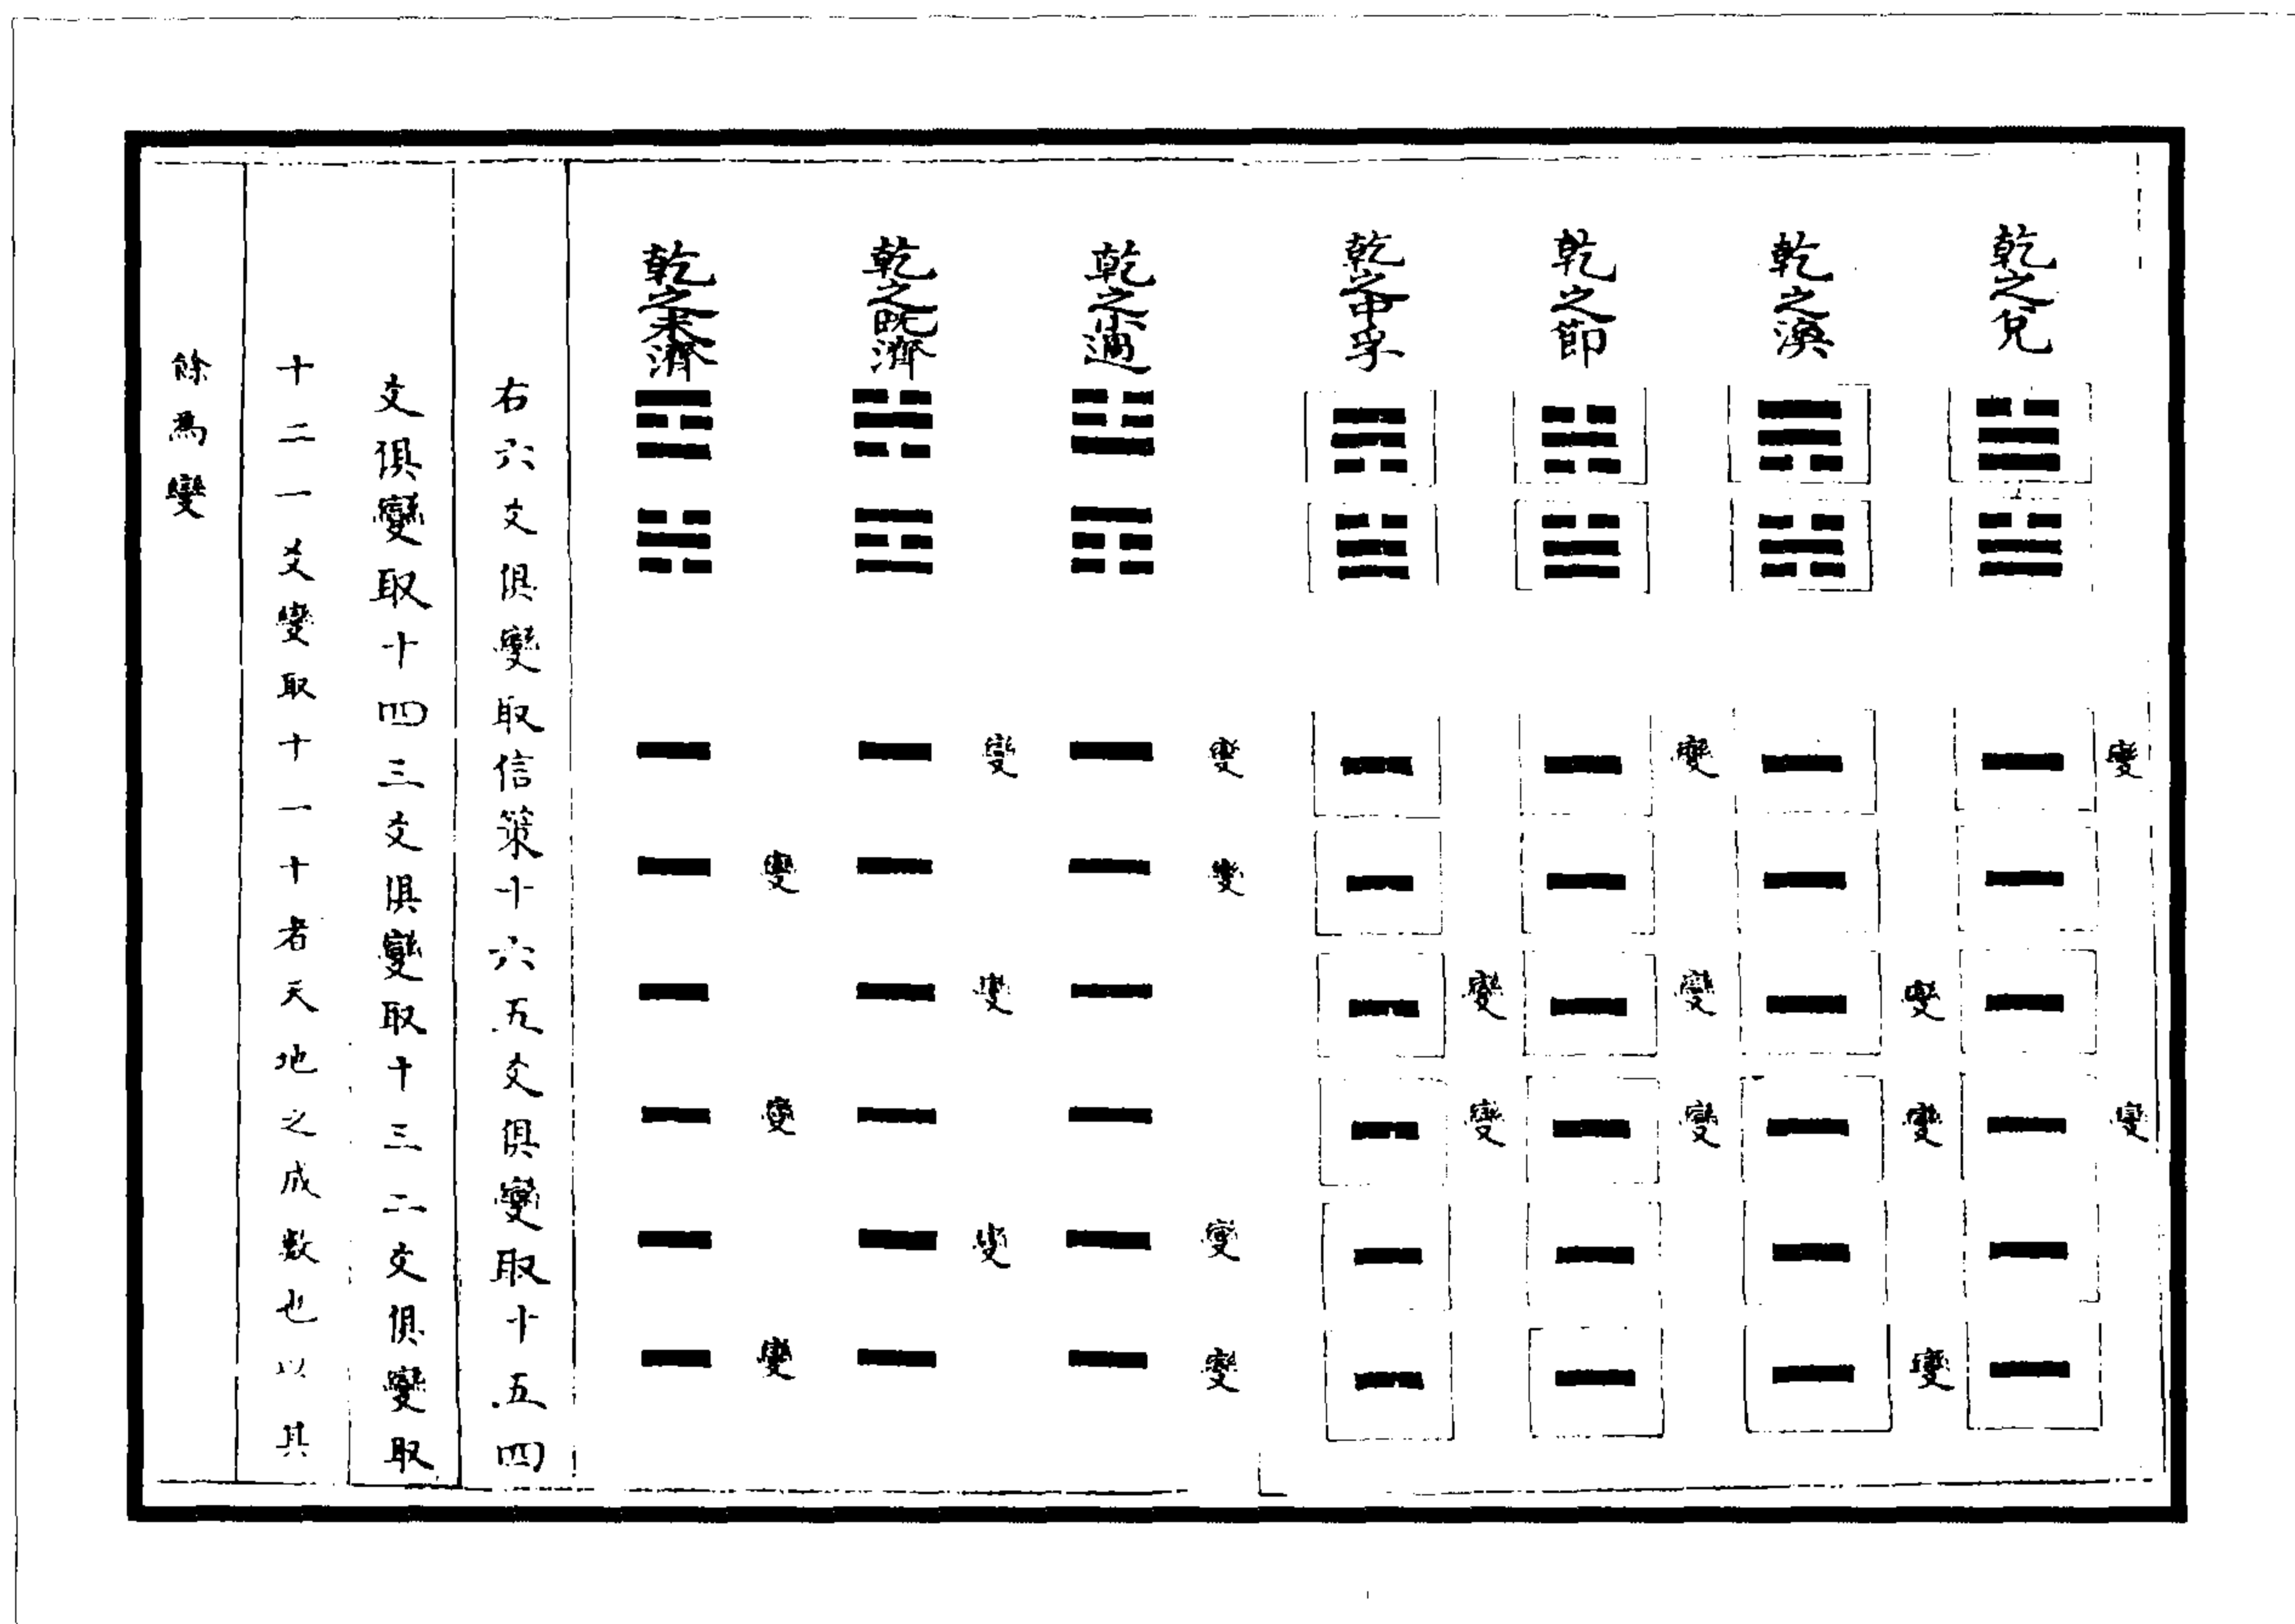 乾之兌
變
變
乾之渙
變
變
變
乾之節
變
變
變
乾之中孚
變
變
乾之小過
變
變
變
變
乾之既濟
變
變
變
乾之未濟
變
變
變
右六爻俱變取信策十六五爻俱變取十五四
爻俱變取十四三爻俱變取十三二爻俱變取
十二一爻變取十一十者天地之成數也以其
餘為變